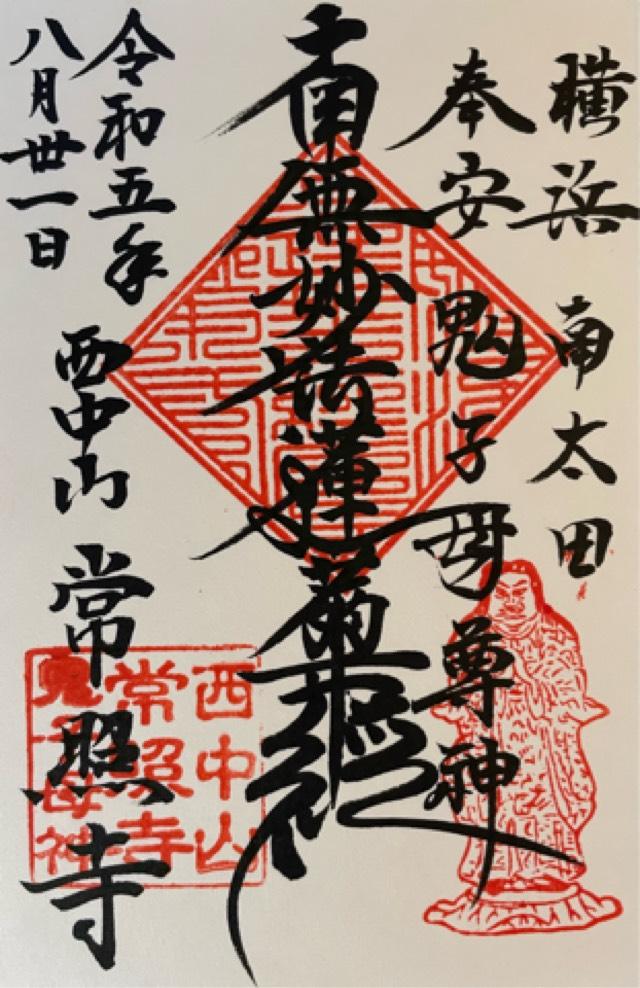 横浜 南太田
奉安 鬼子母尊神
南無妙法蓮華経
令和五年
八月卅一日
西中山 常照寺
西中山
常照寺
鬼子母神